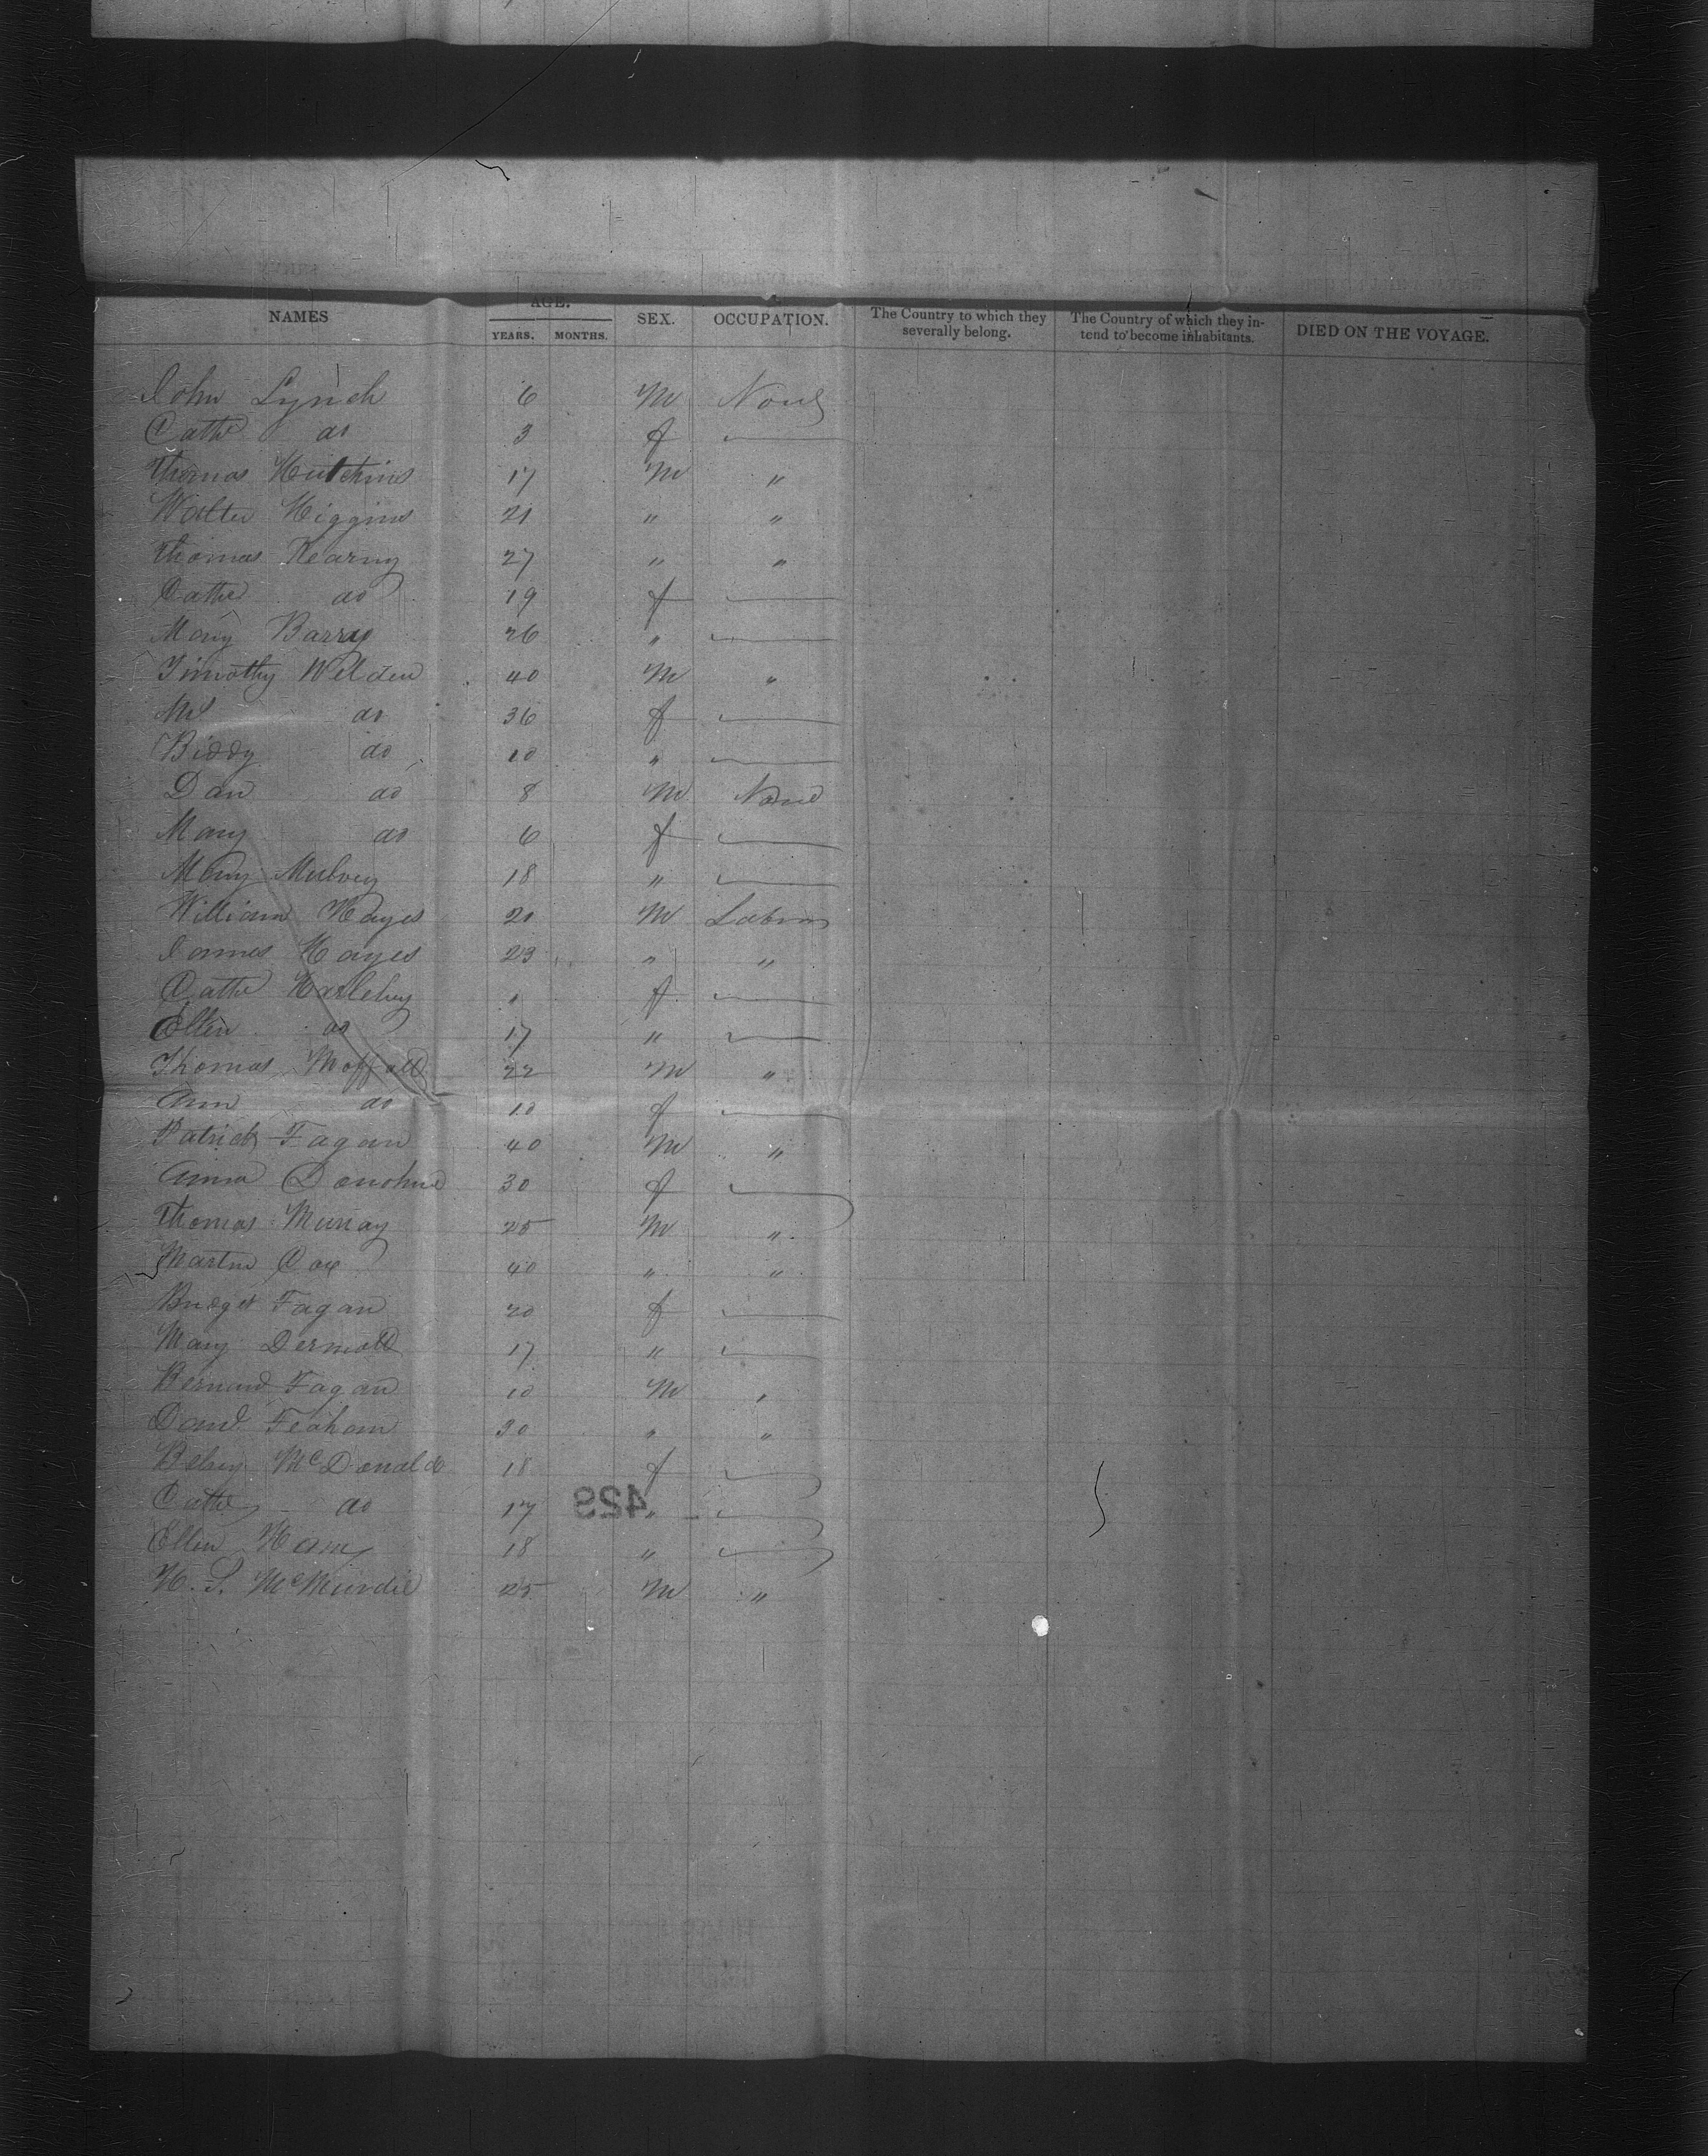 NAMES AGE. YEARS. MONTHS. SEX. OCCUPATION. The Country to which they severally belong. The Country of which they intend to become inhabitants. DIED ON THE VOYAGE.
John Lynch 6 M None
Cathe do 3 f
Thomas Hutchins 17 M "
Walter Higgins 21 " "
Thomas Kearny 27 " "
Cathe do 19 f
Mary Barry 26 "
Timothy Welden 40 M "
Mrs do 36 f
Biddy do 10 "
Dan do 8 M None
Mary do 6 f
Mary Mulvey 18 "
William Hayes 21 M Labour
James Hayes 23 " "
Cathe " f
Ellen do 17 "
Thomas Moffatt 22 M "
Ann do 10 f
Patrick Fagan 40 M "
Anna Donohue 30 f
Thomas Murray 25 M "
Martin Cox 40 " "
Bridget Fagan 20 f
Mary Dermott 17 "
Bernard Fagan 10 M "
Danl 30 " "
Betsey McDonald 18 f
Cathe do 17 "
429
Ellen 18 "
H. S. McMurdie 25 M "